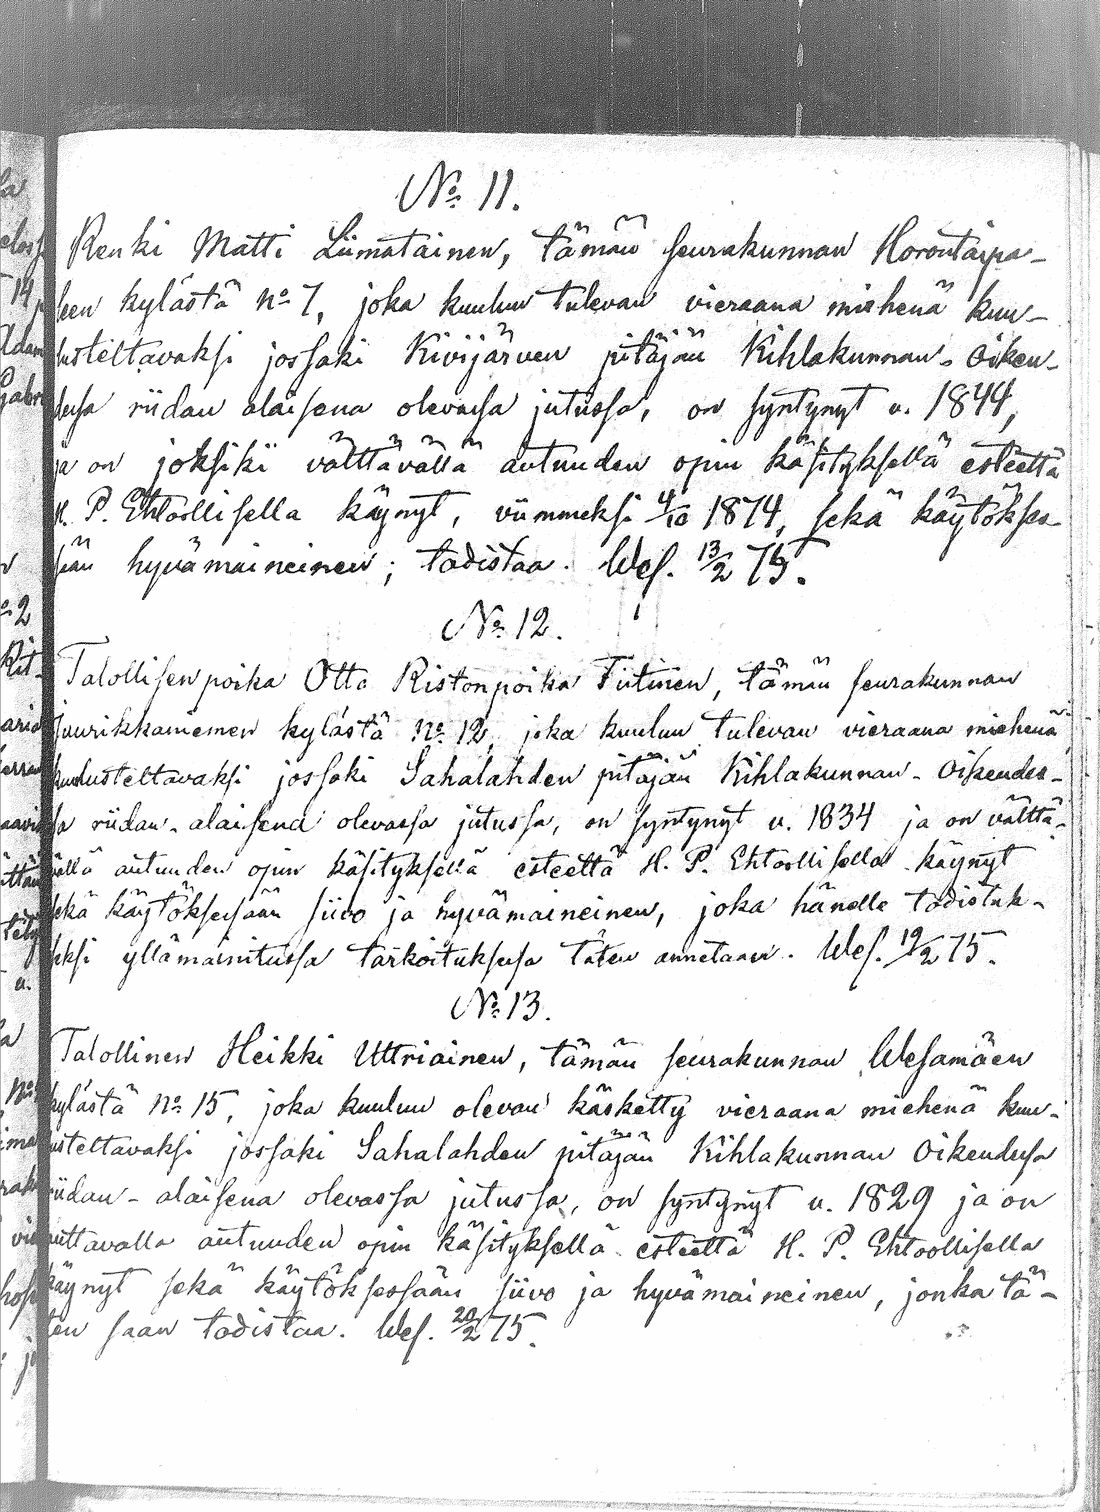 No 11.
Renki Matti Liimatainen, tämän seurakunnan Horontaipa-
leen kylästä No 7, joka kuuluu tulevan vieraana miehenä kuu-
lusteltavaksi jossaki Kivijärven pitäjän Kihlakunnan-Oiken-
dessa riidan alaisena olevassa jutussa, on syntynyt v. 1844,
ja on joksiki välttävällä autuuden opin käsityksellä esteettä
H. P. Ehtoollisella käynyt, viimmeksi 4/10 1874, sekä käytökses-
sään hyvämaineinen; todistaa. Wes. 13/2 75.
No 12.
Talollisen poika Otto Ristonpoika Tiitinen, tämän seurakunnan
Juurikkaniemen kylästä No 12, joka kuuluu tulevan vieraana miehenä
kuulusteltavaksi jossaki Sahalahden pitäjän Kihlakunnan-Oikendes-
sa riidan-alaisena olevassa jutussa, on syntynyt v. 1834 ja on välttä-
vällä autuuden opin käsityksellä esteettä H. P. Ehtoollisella käynyt
sekä käytöksessään siivo ja hyvämaineinen, joka hänelle todistuk-
seksi yllämainitussa tarkoituksessa täten annetaan. Wes. 19/2 75.
No 13.
Talollinen Heikki Uttriainen, tämän seurakunnan Wesamäen
kylästä No 15, joka kuuluu olevan käsketty vieraana miehenä kuu-
lusteltavaksi jossaki Sahalahden pitäjän Kihlakunnan Oikendessa
riidan-alaisena olevassa jutussa, on syntynyt v. 1829 ja on
välttävällä autuuden opin käsityksellä esteettä H. P. Ehtoollisella
käynyt sekä käytöksessään siivo ja hyvämaineinen, jonka tä-
ten saan todistaa. Wes. 20/2 75.